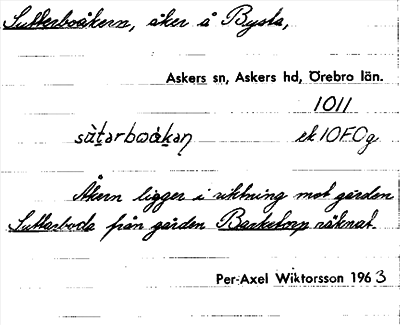 Sutterboåkern, åker å Bysta,
Askers sn, Askers hd, Örebro län.
1011
sùt̠arboåkan̥ ek10F0g
Åkern ligger i riktning mot gården
Suttarboda från gården Barkstorp räknat.
Per-Axel Wiktorsson 1963